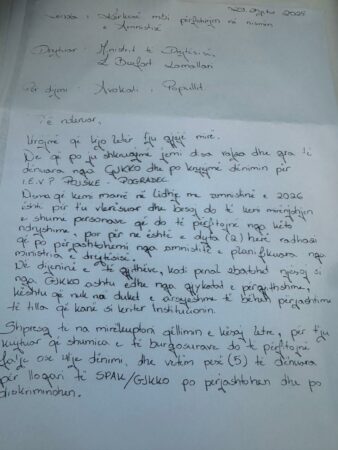 23. 2025
Lënda : Kërkesë mbi përfshirjen në nismën
e Amnistisë
Drejtuar : Ministrit të Drejtësisë,
Z. Besfort Lamallari
Për dijeni : Avokati i Popullit
Të nderuar,
Urojmë që kjo letër t'ju gjejë mirë.
Ne që po ju shkruajmë jemi disa vajza dhe gra të
dënuara nga GJKKO dhe po kryejmë dënimin për
I.E.V.P POGRADEC.
Nisma që keni marrë në lidhje me amnistinë e 2026
është për t'u vlerësuar dhe besoj do të keni mirënjohjen
e shumë personave që do të përfitojnë nga këto
ndryshime, por për ne është e dyta (2) herë radhazi
që po përjashtohemi nga amnistitë e planifikuara nga
ministria e drejtësisë.
Në dijeninë e të gjithëve, kodi penal zbatohet njësoj si
nga GJKKO ashtu edhe nga gjykatat e përgjithshme,
kështu që nuk na duket e arsyeshme të bëhen përjashtime
të tilla që kanë si kriter institucionin.
Shpresoj të na mirëkuptoni qëllimin e kësaj letre, për t'ju
kujtuar që shumica e të burgosurave do të përfitojnë
falje ose ulje dënimi, dhe vetëm pesë (5) të dënuara
për llogari të SPAK/GJKKO po përjashtohen dhe po
diskriminohen.